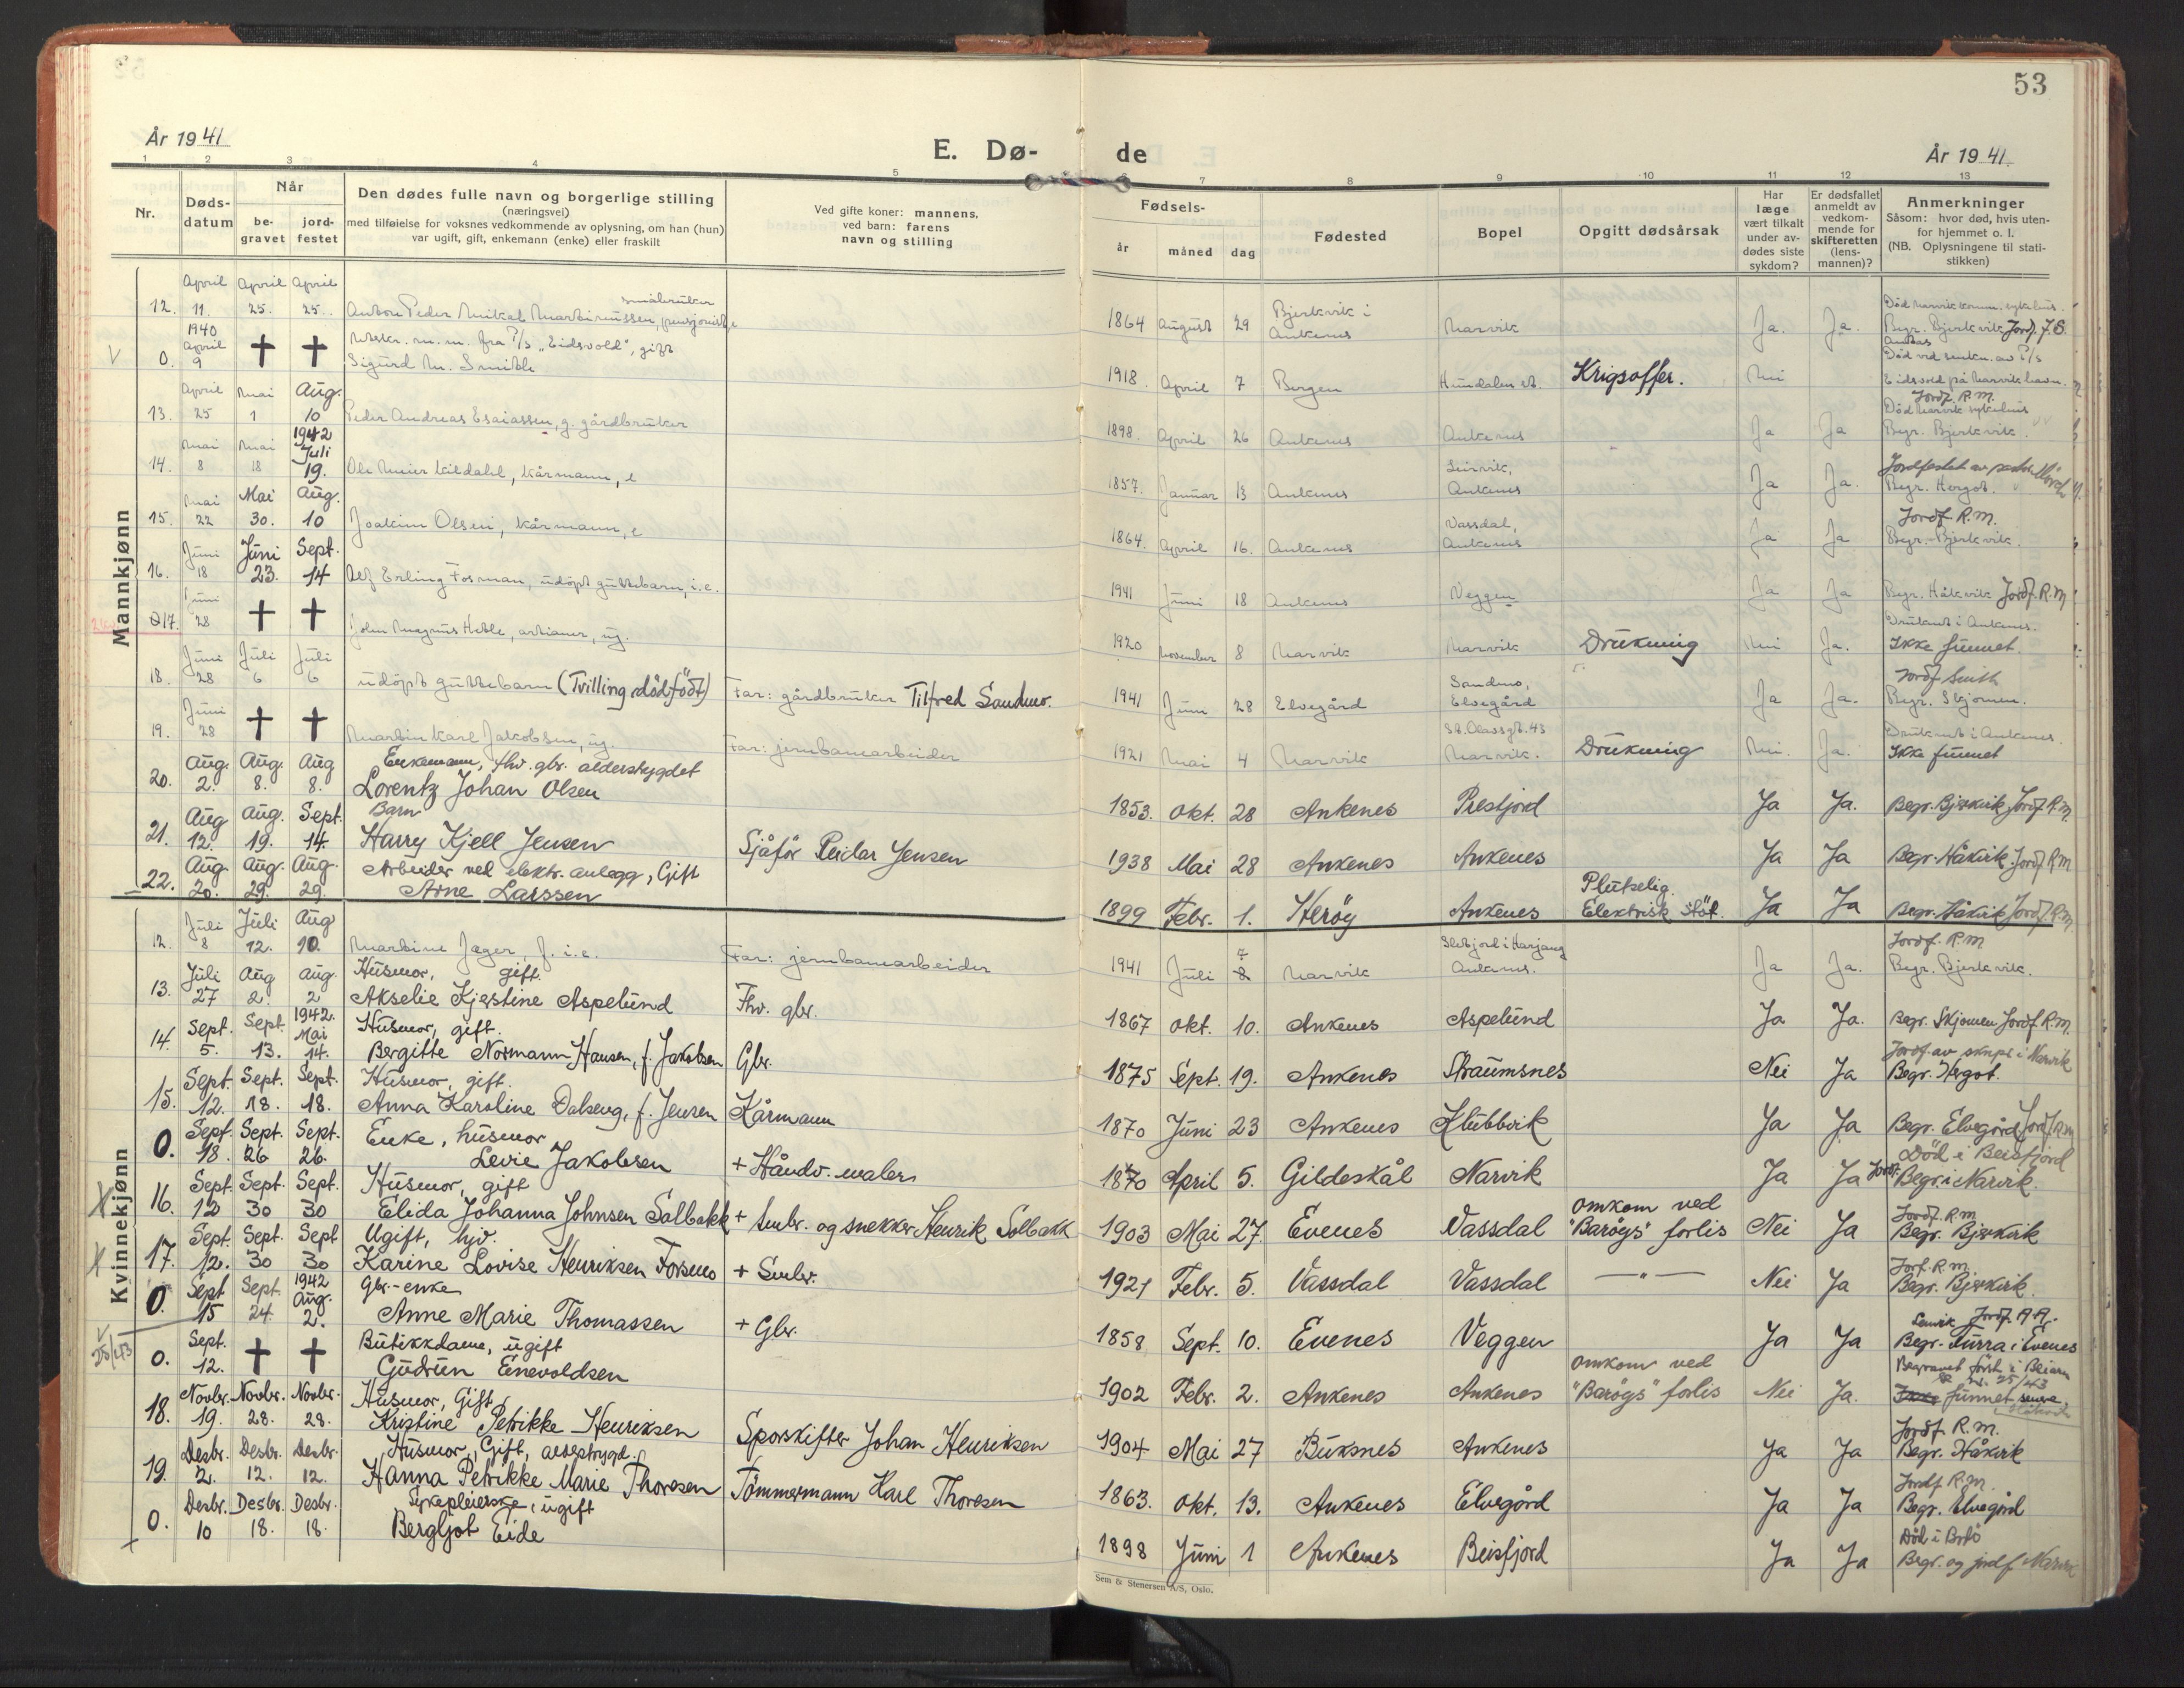 53
År 1941
E. Dø-
de
År 1941.
1 2 3 4 5 6 7 8 9 10 11 12 13
Nr.
Døds-
datum
Når
be-
gravet
jord-
festet
Den dødes fulle navn og borgerlige stilling
(næringsvei)
med tilføielse for voksnes vedkommende av oplysning, om han (hun)
var ugift, gift, enkemann (enke) eller fraskilt
Ved gifte koner: mannens,
ved barn: farens
navn og stilling
Fødsels-
år
måned
dag
Fødested
Bopel
Opgitt dødsårsak
Har
læge
vært tilkalt
under av-
dødes siste
sykdom?
Er dødsfallet
anmeldt av
vedkom-
mende for
skifteretten
(lens-
mannen)?
Anmerkninger
Såsom: hvor død, hvis uten-
for hjemmet o. l.
(NB. Oplysningene til stati-
stikken)
Mannkjønn
April April April småbruker Bjerkvik i Død Narvik komm. sykehus.
12. 11. 25. 25. Anton Peder Mikal Martinussen, pensjonist, e 1864 August 29 Ankenes Narvik Ja. Ja. Begr. Bjerkvik Jordf. J.S.
1940 April 9
0. † † fra P/s "Eidsvold", gift
Sigurd M. Smitth 1918. April 7 Bergen Krigsoffer. Nei Død ved senkn. av P/s
Eidsvold på Narvik havn.
April Mai Aug. Jordf. R.M.
Død Narvik sykehus
13. 25 1 10 Peder Andreas Esaiassen, g. gårdbruker 1898. April 26 Ankenes Ankenes Ja Ja Begr. Bjerkvik.
Mai Mai 1942 Juli
14. 8 18 19. Ole Meier Kildahl, kårmann, e 1857. Januar 13 Ankenes Ankenes Ja Ja. Jordfestet av
Begr. Hergot.
Mai Mai Aug. Vassdal, Jordf. R.M.
15. 22 30. 10 Joakim Olsen, kårmann, e 1864. April 16. Ankenes Ankenes Ja Ja Begr. Bjerkvik.
Juni Juni Sept.
16. 18 23. 14 Alf Erling Fosman, udöpt guttebarn, i.e. 1941 Juni 18 Ankenes Veggen Ja Ja Begr. Håkvik Jordf. R.M
Juni Druknet i Ankenes.
017. 28 † † John Magnus Heble, artianer, ug. 1920 November 8 Narvik Narvik Drukning Nei Ja. Ikke funnet.
Juni Juli Juli Sandmo, Jordf Smith
18. 28 6 6 udöpt guttebarn (Tvilling, dödfödt) Far: gårdbruker Tilfred Sandmo. 1941 Juni 28 Elvegård Elvegård Ja Ja. Begr. Skjomen.
Juni St. Olavsgt. 43 Druknet i Ankenes.
19. 28 † † Martin Karl Jakobsen, ug. Far: jernbanearbeider 1921 Mai 4 Narvik Narvik. Drukning Nei. Ja. Ikke funnet
Aug. Aug. Aug Enkemann, fhv. gbr. alderstrygdet
20. 2. 8. 8. Lorentz Johan Olsen 1853. Okt. 28 Ankenes Prestjord Ja Ja. Begr. Bjerkvik Jordf. R.M.
Aug Aug. Sept. Barn
21. 12. 19. 14. Harry Kjell Jensen Sjåför Peidar Jensen 1938 Mai 28 Ankenes Ankenes Ja Ja Begr. Håkvik. Jordf R.M
Aug Aug. Aug. Arbeider ved elektr. anlegg, Gift Plutselig.
22. 20. 29. 29. Arne Larssen 1899 Febr. 1. Heröy Ankenes Elektrisk stöt. Ja Ja Begr. Håkvik Jordf. R.M.
Kvinnekjønn
Juli Juli Aug Sletjord i Harjang Jordf. R.M
12. 8 12. 10. Martine Jæger, f. i.e. Far: jernbanearbeider 1941 Juli 7 8 Narvik Ankenes. Ja Ja. Begr. Bjerkvik.
Juli Aug Aug. Husmor, gift.
13. 27 2. 2 Akselie Kjerstine Aspelund Fhv. gbr. 1867 Okt. 10. Ankenes Aspelund Ja Ja. Begr. Skjomen. Jordf R.M.
Sept. Sept. 1942. Mai Husmor, gift. Jordf. av sknpr. i Narvik
14. 5. 13. 14. Bergitte Normann Hansen, f. Jakobsen Gbr. 1875 Sept. 19. Ankenes Straumsnes Nei Ja Begr. Hergot.
Sept. Sept. Sept. Husmor, gift.
15. 12. 18. 18. Anna Karoline Dalseng, f. Jensen Kårmann 1870 Juni 23 Ankenes Klubbvik Ja Ja Begr. Elvegård Jordf R.M
Sept. Sept. Sept. Enke, husmor Död i Beisfjord
0. 18. 26 26. Levie Jakobsen + Håndv. maler 1870 April 5. Gildeskål Narvik Ja Ja Jordf. Begr. i Narvik.
Sept. Sept. Sept. Husmor, gift omkom ved Jordf. R.M
16. 12 30 30 Elida Johanna Johnsen Solbakk + Smbr. og snekker Henrik Solbakk 1903 Mai 27. Evenes Vassdal "Barøys" forlis Nei Ja Begr. Bjerkvik
Sept. Sept. Sept Ugift, hjv. Jorf. R.M
17. 12. 30 30 Karine Lovise Henriksen Forsmo + Smbr. 1921 Febr. 5. Vassdal Vassdal —"— Nei Ja Begr. Bjerkvik.
Sept Sept. 1942 Aug. Gbr.-enke Jordf. A.A.
0. 15 24 2. Anne Marie Thomassen + Gbr. 1858 Sept. 10. Evenes Veggen Ja Ja Begr. Turra i Evenes
25/43
Sept. Butikkdame, ugift omkom ved Begravet först i Beiarn
nr. 25/43
0. 12. † † Gudrun Enevoldsen 1902 Febr. 2. Ankenes Ankenes "Barøys" forlis Nei Ja. Ikke funnet senere
Novbr. Novbr. Novbr. Husmor, Gift Jordf R.M.
18. 19. 28. 28. Kristine Petrikke Henriksen Sporskifter Johan Henriksen 1904 Mai 27 Buksnes Ankenes Ja Ja Begr. Håkvik
Desbr. Desbr. Desbr. Husmor, Gift, alderstrygd. Jordf R.M.
19. 2. 12. 12. Hanna Petrikke Marie Thoresen Tömmermann Karl Thoresen 1863. Okt. 13. Ankenes Elvegård Ja Ja Begr. Elvegård
Desbr. Desbr. Desbr. Sykepleierske, ugift Död i Bodö
0. 10 18. 18. Bergljot Eide 1898 Juni 1 Ankenes Beisfjord Ja Ja Begr. og jordf Narvik
Sem & Stenersen A/S, Oslo.